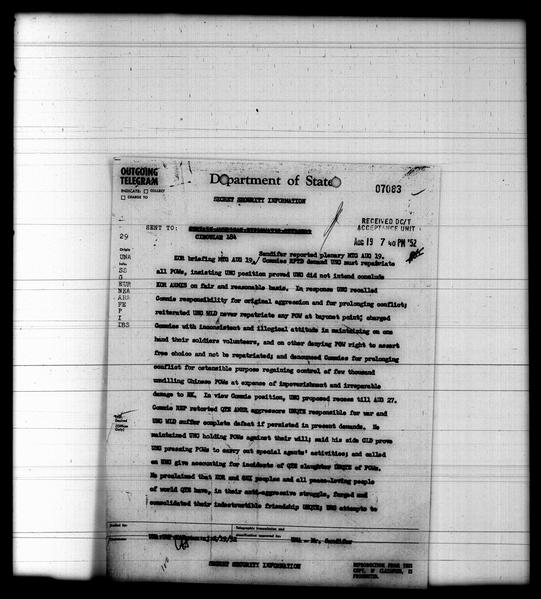 OUTGOING
TELEGRAM
INDICATE: COLLECT
CHARGE TO
Department of State
07083
SECRET SECURITY INFORMATION
SENT TO:
CIRCULAR 184
RECEIVED DC/T
ACCEPTANCE UNIT
AUG 19 7 40 PM '52
29
Origin
UNA
Info
SS
G
EUR
NEA
ARA
FE
P
I
IBS
Sandifer reported plenary MTG AUG 19.
KOR briefing MTG AUG 19, Commies RPTD demand UNC must repatriate
all POWs, insisting UNC position proved UNC did not intend conclude
KOR ARMIS on fair and reasonable basis. In response UNC recalled
Commie responsibility for original aggression and for prolonging conflict;
reiterated UNC WLD never repatriate any POW at bayonet point; charged
Commies with inconsistent and illogical attitude in maintaining on one
hand their soldiers volunteers, and on other denying POW right to assert
free choice and not be repatriated; and denounced Commies for prolonging
conflict for ostensible purpose regaining control of few thousand
unwilling Chinese POWs at expense of impoverishment and irreparable
damage to NK. In view Commie position, UNC proposed recess till AUG 27.
Commie REP retorted QTE AMER aggressors UNQTE responsible for war and
UNC WLD suffer complete defeat if persisted in present demands. He
maintained UNC holding POWs against their will; said his side CLD prove
UNC pressing POWs to carry out special agents' activities; and called
on UNC give accounting for incidents of QTE slaughter UNQTE of POWs.
He proclaimed that KOR and CHI peoples and all peace-loving people
of world QTE have, in their anti-aggressive struggle, forged and
consolidated their indestructible friendship UNQTE; UNC attempts to
Telegraphic transmission and
classification approved by:
UNA - Mr. Sandifer
SECRET SECURITY INFORMATION
REPRODUCTION FROM THIS
COPY, IF CLASSIFIED, IS
PROHIBITED.